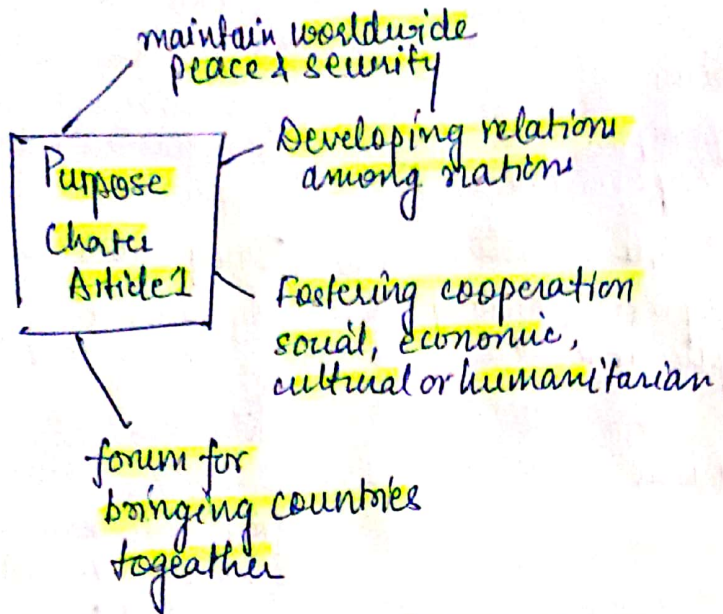 maintain worldwide
peace & security
Purpose
Charter
Article 1
Developing relations
among nations
Fostering cooperation
social, economic,
cultural or humanitarian
forum for
bringing countries
togeather